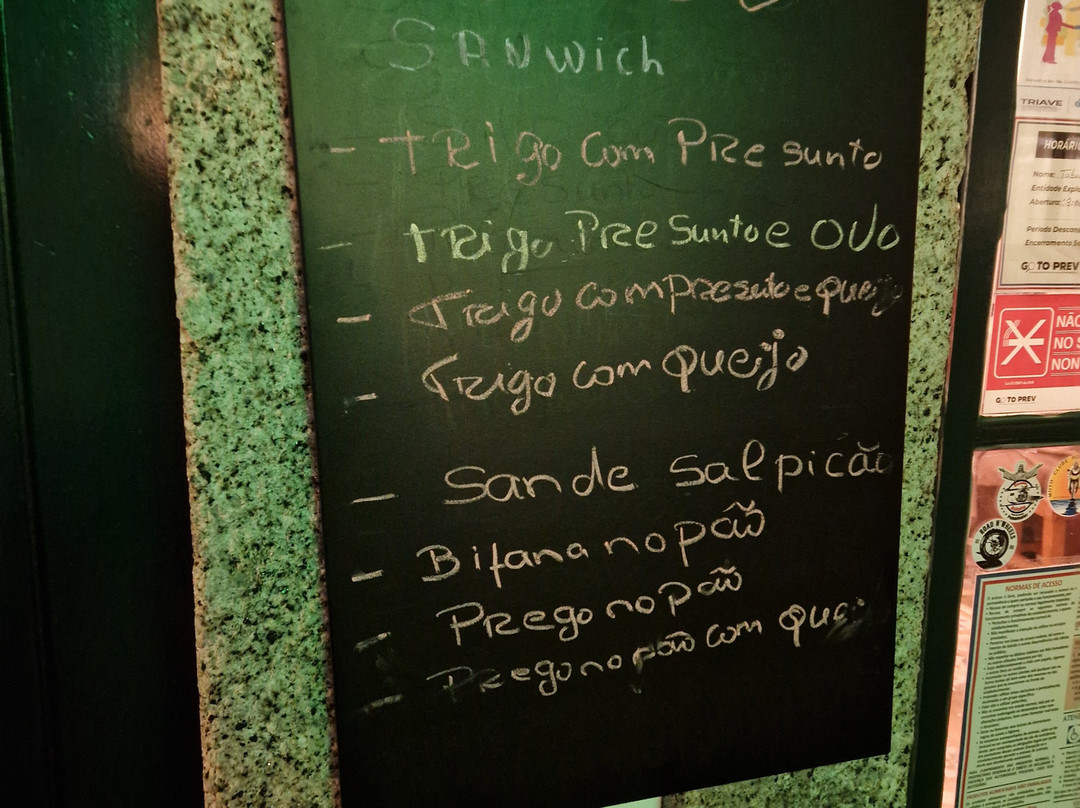 SANWich
- tRigo com PResunto
- tRigo PResunto e OVO
- TRigo com presuto e quei
- TRigo com queijo
- Sande salpicão
- Bifana no pão
- PRego no pão
- PRego no pão com quei
TRIAVE
HORÁRI
Nome:
Entidade Explo
Abertura:
Período Descan
Encerramento Se
GO TO PREV
NÃO
NO S
NON
GO TO PREV
ROAD N'WHEELS
NORMAS DE ACESSO